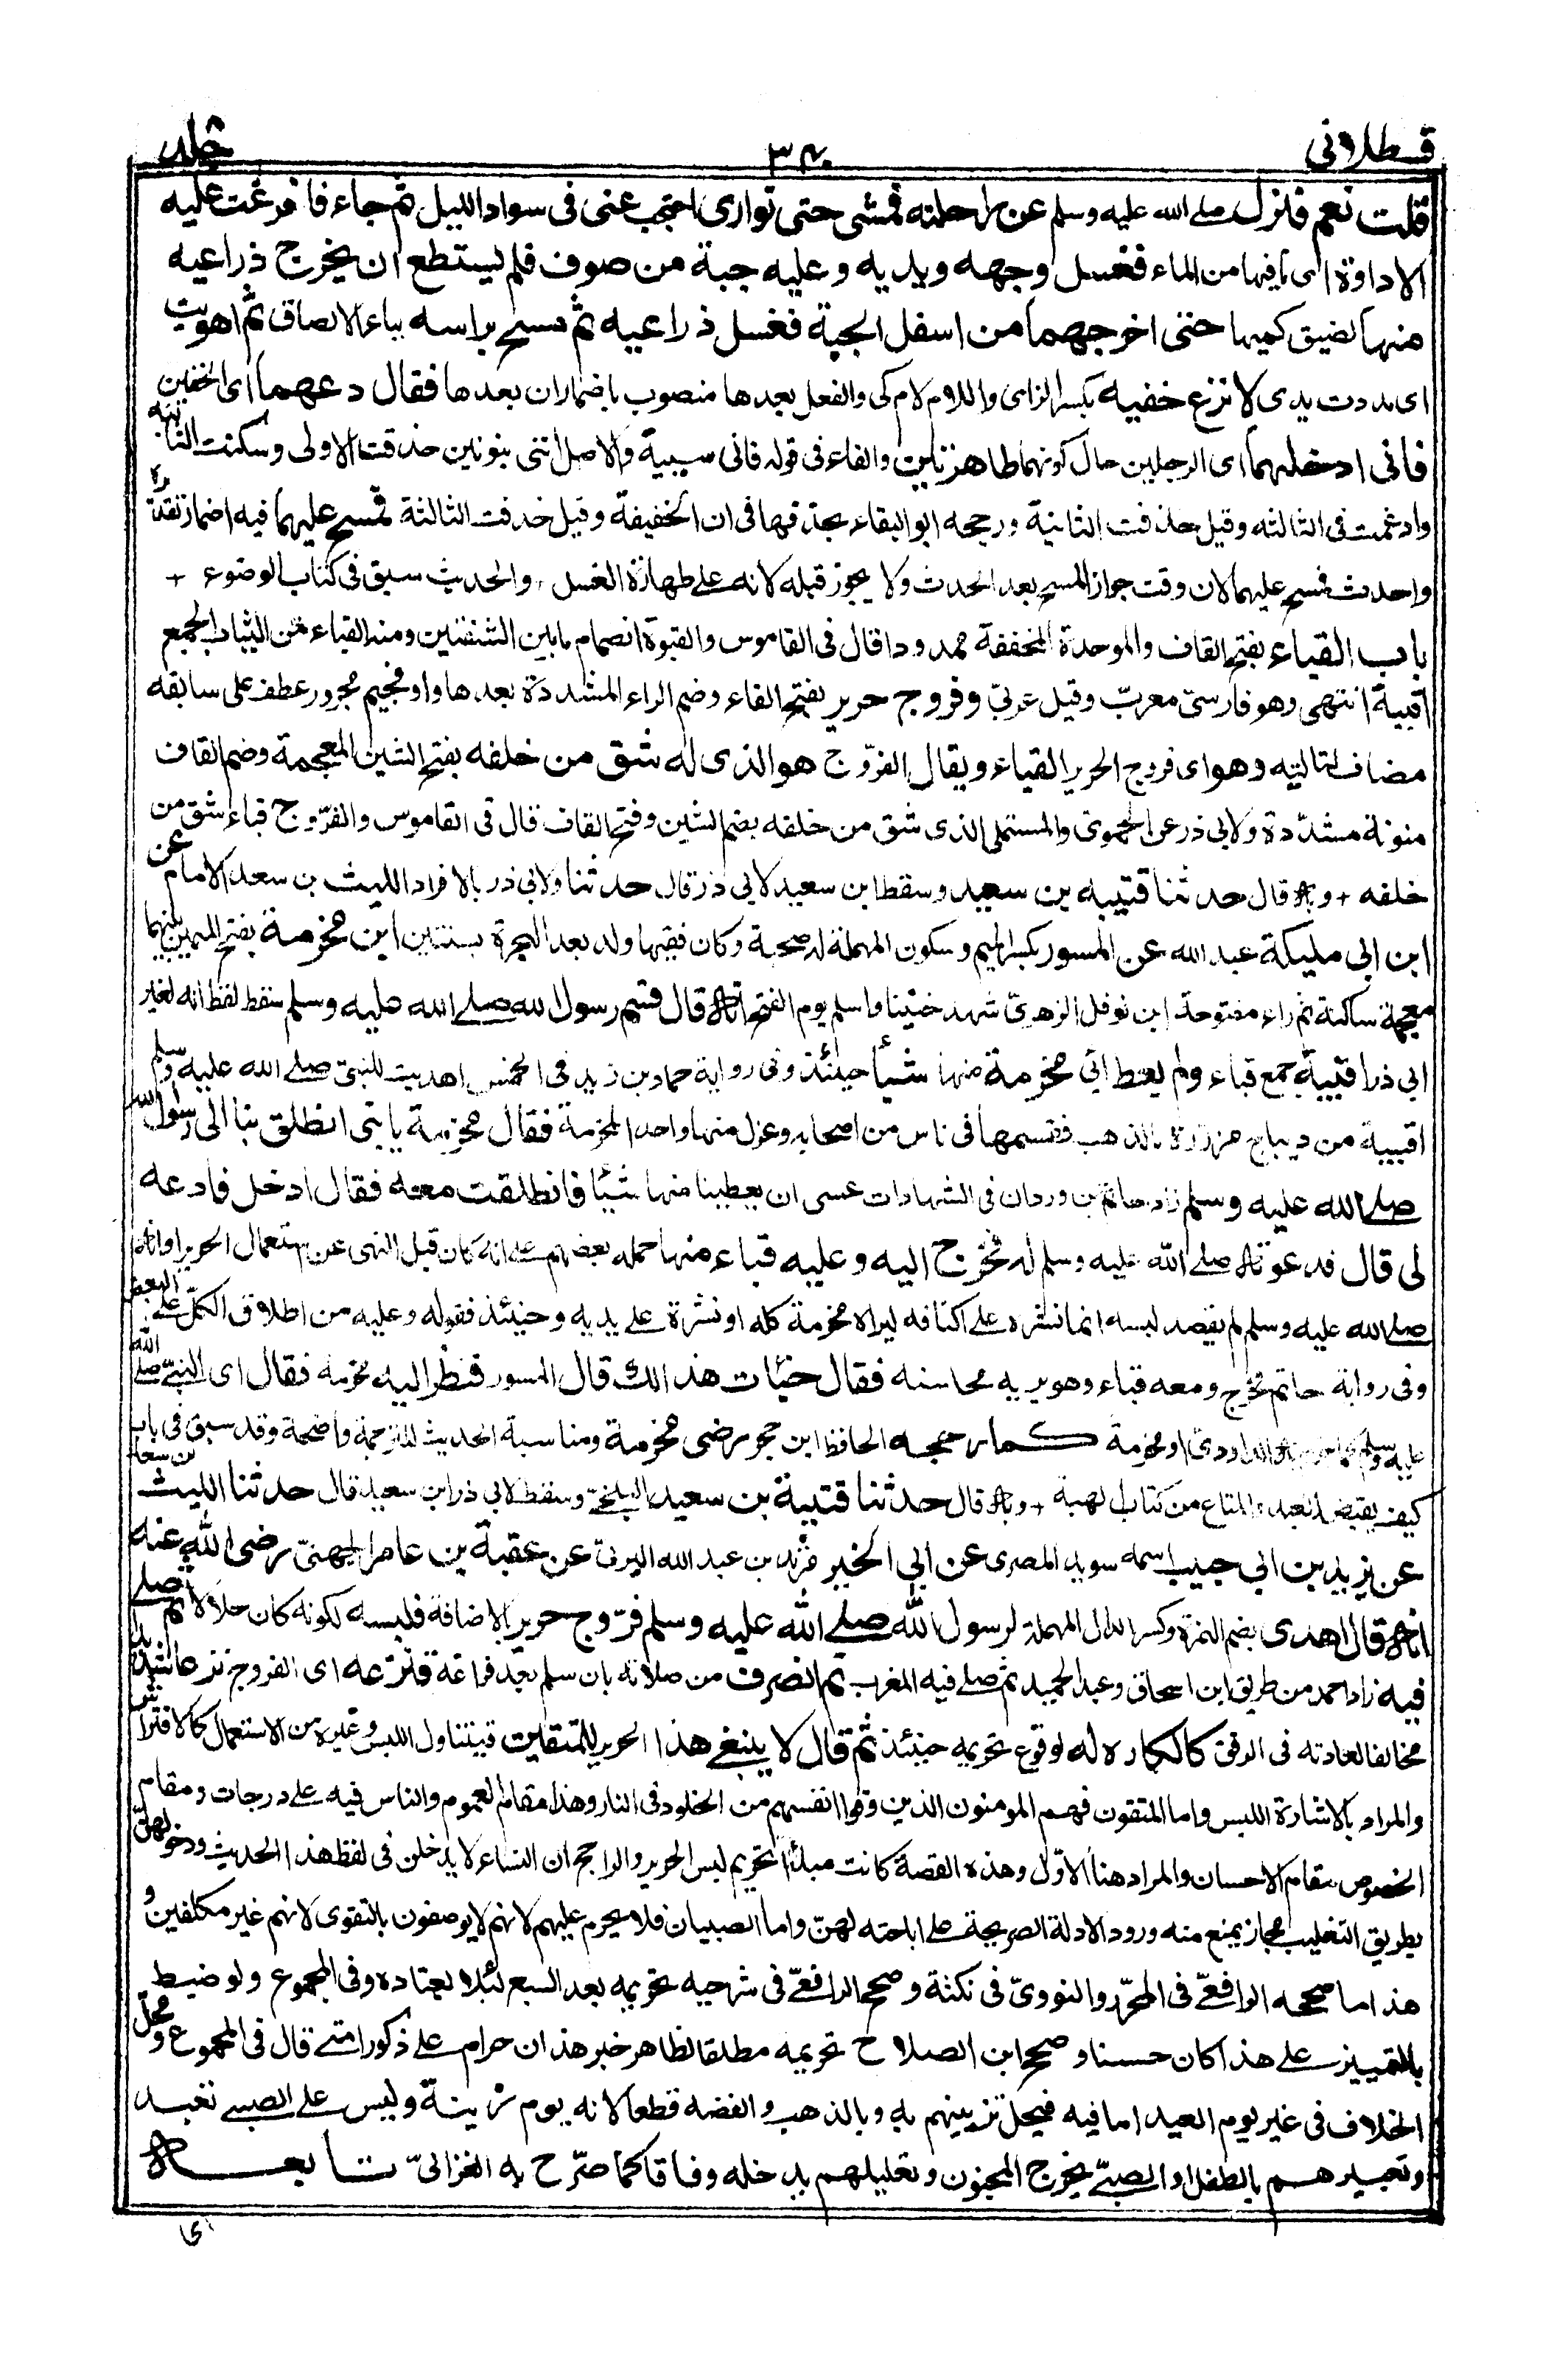 قسطلانى
٣٤٠
جلد
قلت نعم فنزل صلى الله عليه وسلم عن راحلته فمشى حتى توارى احتجب عنى فى سواد الليل ثم جاء فافرغت عليه
الاداوة اى مافيها من الماء فغسل وجهه ويديه وعليه جبة من صوف فلم يستطع ان يخرج ذراعيه
منها لضيق كميها حتى اخرجهما من اسفل الجبة فغسل ذراعيه ثم مسح براسه بباء الالصاق ثم اهويت
اى مددت يدى لانزع خفيه بكسر الزاى واللام لام كى والفعل بعدها منصوب باضماران بعدها فقال دعهما اى الخفين
فانى ادخلتهما اى الرجلين حال كونهما طاهرتين والفاء فى قوله فانى سببية والاصل اننى بنونين حذفت الاولى وسكنت الثانية
وادغمت فى الثالثه وقيل حذفت الثانية ورجحه ابو البقاء بحذفها فى ان الخفيفة وقيل حذفت الثالثة فمسح عليهما فيه اضمار تقديره
واحدث فمسح عليهما لان وقت جواز المسح بعد الحدث ولا يجوز قبله لانه على طهارة الغسل والحديث سبق فى كتاب الوضوء +
باب القباء بفتح القاف والموحدة المخففة ممدودا قال فى القاموس والقبوة انضمام مابين الشفتين ومنه القباء من الثياب الجمع
اقبية انتهى وهو فارسىّ معربّ وقيل عربىّ وفروج حرير بفتح الفاء وضم الراء المشددة بعدها واو فجيم مجرور عطف على سابقه
مضاف لتاليه وهو اى فروج الحرير القباء ويقال الفرّوج هو الذى له شق من خلفه بفتح الشين المعجمة وضم القاف
منونة مشدّدة ولابى ذر عن الحموى والمستملى الذى شق من خلفه بضم الشين وفتح القاف قال فى القاموس والفرّوج قباء شق من
خلفه + وبه قال حدثنا قتيبه بن سعيد وسقط ابن سعيد لابى ذر قال حدثنا ولابى ذر بالافراد الليث بن سعد الامام عن
ابن ابى مليكة عبد الله عن المسور بكسر الميم وسكون المهملة له صحبة وكان فقيها ولد بعد الهجرة بسنتين ابن مخرمة بفتح الميمين بينهما
معجمة ساكنة ثم راء مفتوحة ابن نوفل الزهرىّ شهد حنينا واسلم يوم الفتح انه قال قسم رسول الله صلى الله عليه وسلم سقط لفظ انه لغير
ابى ذر اقبية جمع قباء ولم يعط ابى مخرمة منها شيأ حينئذ وفى رواية حماد بن زيد فى الخمس اهديت للنبى صلى الله عليه وسلم
اقبية من ديباج مزررة بالذهب فقسمها فى ناس من اصحابه وعزل منها واحدا لمخرمة فقال مخرمة يا بنى انطلق بنا الى رسول الله
صلى الله عليه وسلم زاد حاتم بن وردان فى الشهادات عسى ان يعطينا منها شيئا فانطلقت معه فقال ادخل فادعه
لى قال فدعوته صلى الله عليه وسلم له فخرج اليه وعليه قباء منها حمله بعضهم على انه كان قبل النهى عن استعمال الحرير او انه
صلى الله عليه وسلم لم يقصد لبسه انما نشره على اكتافه ليراه مخرمة كله او نشرة على يديه وحينئذ فقوله وعليه من اطلاق الكل على البعض
وفى رواية حاتم فخرج ومعه قباء وهو يريه محاسنه فقال خبأت هذا لك قال المسور فنظر اليه مخرمة فقال اى النبىّ صلى الله
عليه وسلم كما جزم به الداودىّ او مخرمة كما رجحه الحافظ ابن حجر رضى مخرمة ومناسبة الحديث للترجمة واضحة وقد سبق فى باب
كيف يقبض العبد والمتاع من كتاب الهبة + وبه قال حدثنا قتيبة بن سعيد البلخىّ وسقط لابى ذر ابن سعيد قال حدثنا الليث بن سعد
عن يزيد بن ابى حبيب اسمه سويد المصرى عن ابى الخير مرثد بن عبد الله اليزنىّ عن عقبة بن عامر الجهنىّ رضى الله عنه
انه قال اهدى بضم الهمزة وكسر الدال المهملة لرسول الله صلى الله عليه وسلم فرّوج حرير بالاضافة فلبسه لكونه كان حلالا ثم صلى
فيه زاد احمد من طريق ابن اسحاق وعبد الحميد ثم صلى فيه المغرب ثم انصرف من صلاته بان سلم بعد فراغه فنزعه اى الفروج نزعا شديدا
مخالفا لعادته فى الرفق كالكاره له لوقوع تحريمه حينئذ ثم قال لا ينبغى هذا الحرير للمتقين فيتناول اللبس وغيره من الاستعمال كالافتراش
والمراد بالاشارة اللبس واما المتقون فهم المومنون الذين وقوا انفسهم من الخلود فى النار وهذا مقام العموم والناس فيه على درجات ومقام
الخصوص مقام الاحسان والمراد هنا الاوّل وهذه القصة كانت مبدأ تحريم لبس الحرير والراجح ان النساء لا يدخلن فى لفظ هذا الحديث ودخولهنّ
بطريق التغليب مجاز يمنع منه ورود الادلة الصريحة على اباحته لهنّ واما الصبيان فلا يحرم عليهم لانهم لا يوصفون بالتقوى لانهم غير مكلفين و
هذا ما صححه الرافعىّ فى المحرّر والنووىّ فى نكتة وصحح الرافعىّ فى شرحيه تحريمه بعد السبع لئلا يعتاده وفى المجموع ولو ضبط
بالتمييز على هذا كان حسنا وصحح ابن الصلاح تحريمه مطلقا لظاهر خبر هذان حرام على ذكور امتى قال فى المجموع ومحلّ
الخلاف فى غير يوم العيد اما فيه فيحل تزيينهم به وبالذهب والفضه قطعا لانه يوم زينة وليس على الصبى تعبد
وتعبيرهم بالطفل او الصبىّ يخرج المجنون وتعليلهم يدخله وفاقا كما صرّح به الغزالىّ تابعه